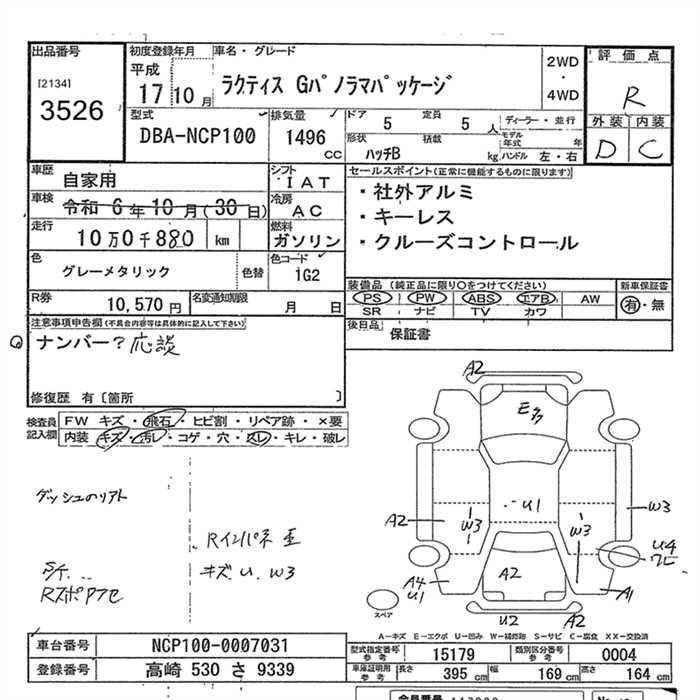 出品番号
[2134]
3526
初度登録年月
平成
17 10月
車名・グレード
ラクティス Gパノラマパッケージ
2WD
・
4WD
評価点
R
外装 内装
D C
型式
DBA-NCP100
排気量
1496
CC
ドア 5
定員 5 人
ディーラー・並行
形状
ハッチB
積載
kg
モデル
年式 年
ハンドル 左・右
車歴
自家用
シフト
IAT
車検
令和 6年10月(30日)
冷房
AC
走行
10万0千880 km
燃料
ガソリン
色
グレーメタリック
色替
色コード
1G2
セールスポイント(正常に機能するものに限ります)
・社外アルミ
・キーレス
・クルーズコントロール
R券
10,570 円
名変通知期限
月 日
装備品 (純正品に限り○をつけてください)
PS PW ABS エアB AW
SR ナビ TV カワ
新車保証書
有・無
後日品
保証書
注意事項申告欄(不具合内容等は具体的に記入して下さい)
ナンバー?応談
修復歴 有〔箇所 〕
検査員
記入欄
FW キズ・飛石・ヒビ割・リペア跡・×要
内装 キズ・汚レ・コゲ・穴・スレ・キレ・破レ
ダッシュのリアト
Rインパネ歪
キズ U. W3
A2
Eク
U1
A2
W3
W3
W3
U4
A2
A4
U1
A1
U2
A2
スペア
A-キズ E-エクボ U-凹み W-補修跡 S-サビ C-腐食 XX-交換済
車台番号
NCP100-0007031
登録番号
高崎 530 さ 9339
型式指定番号
参考
15179
類別区分番号
参考
0004
車庫証明用
参考
長さ 395 cm
幅 169 cm
高さ 164 cm
会員番号